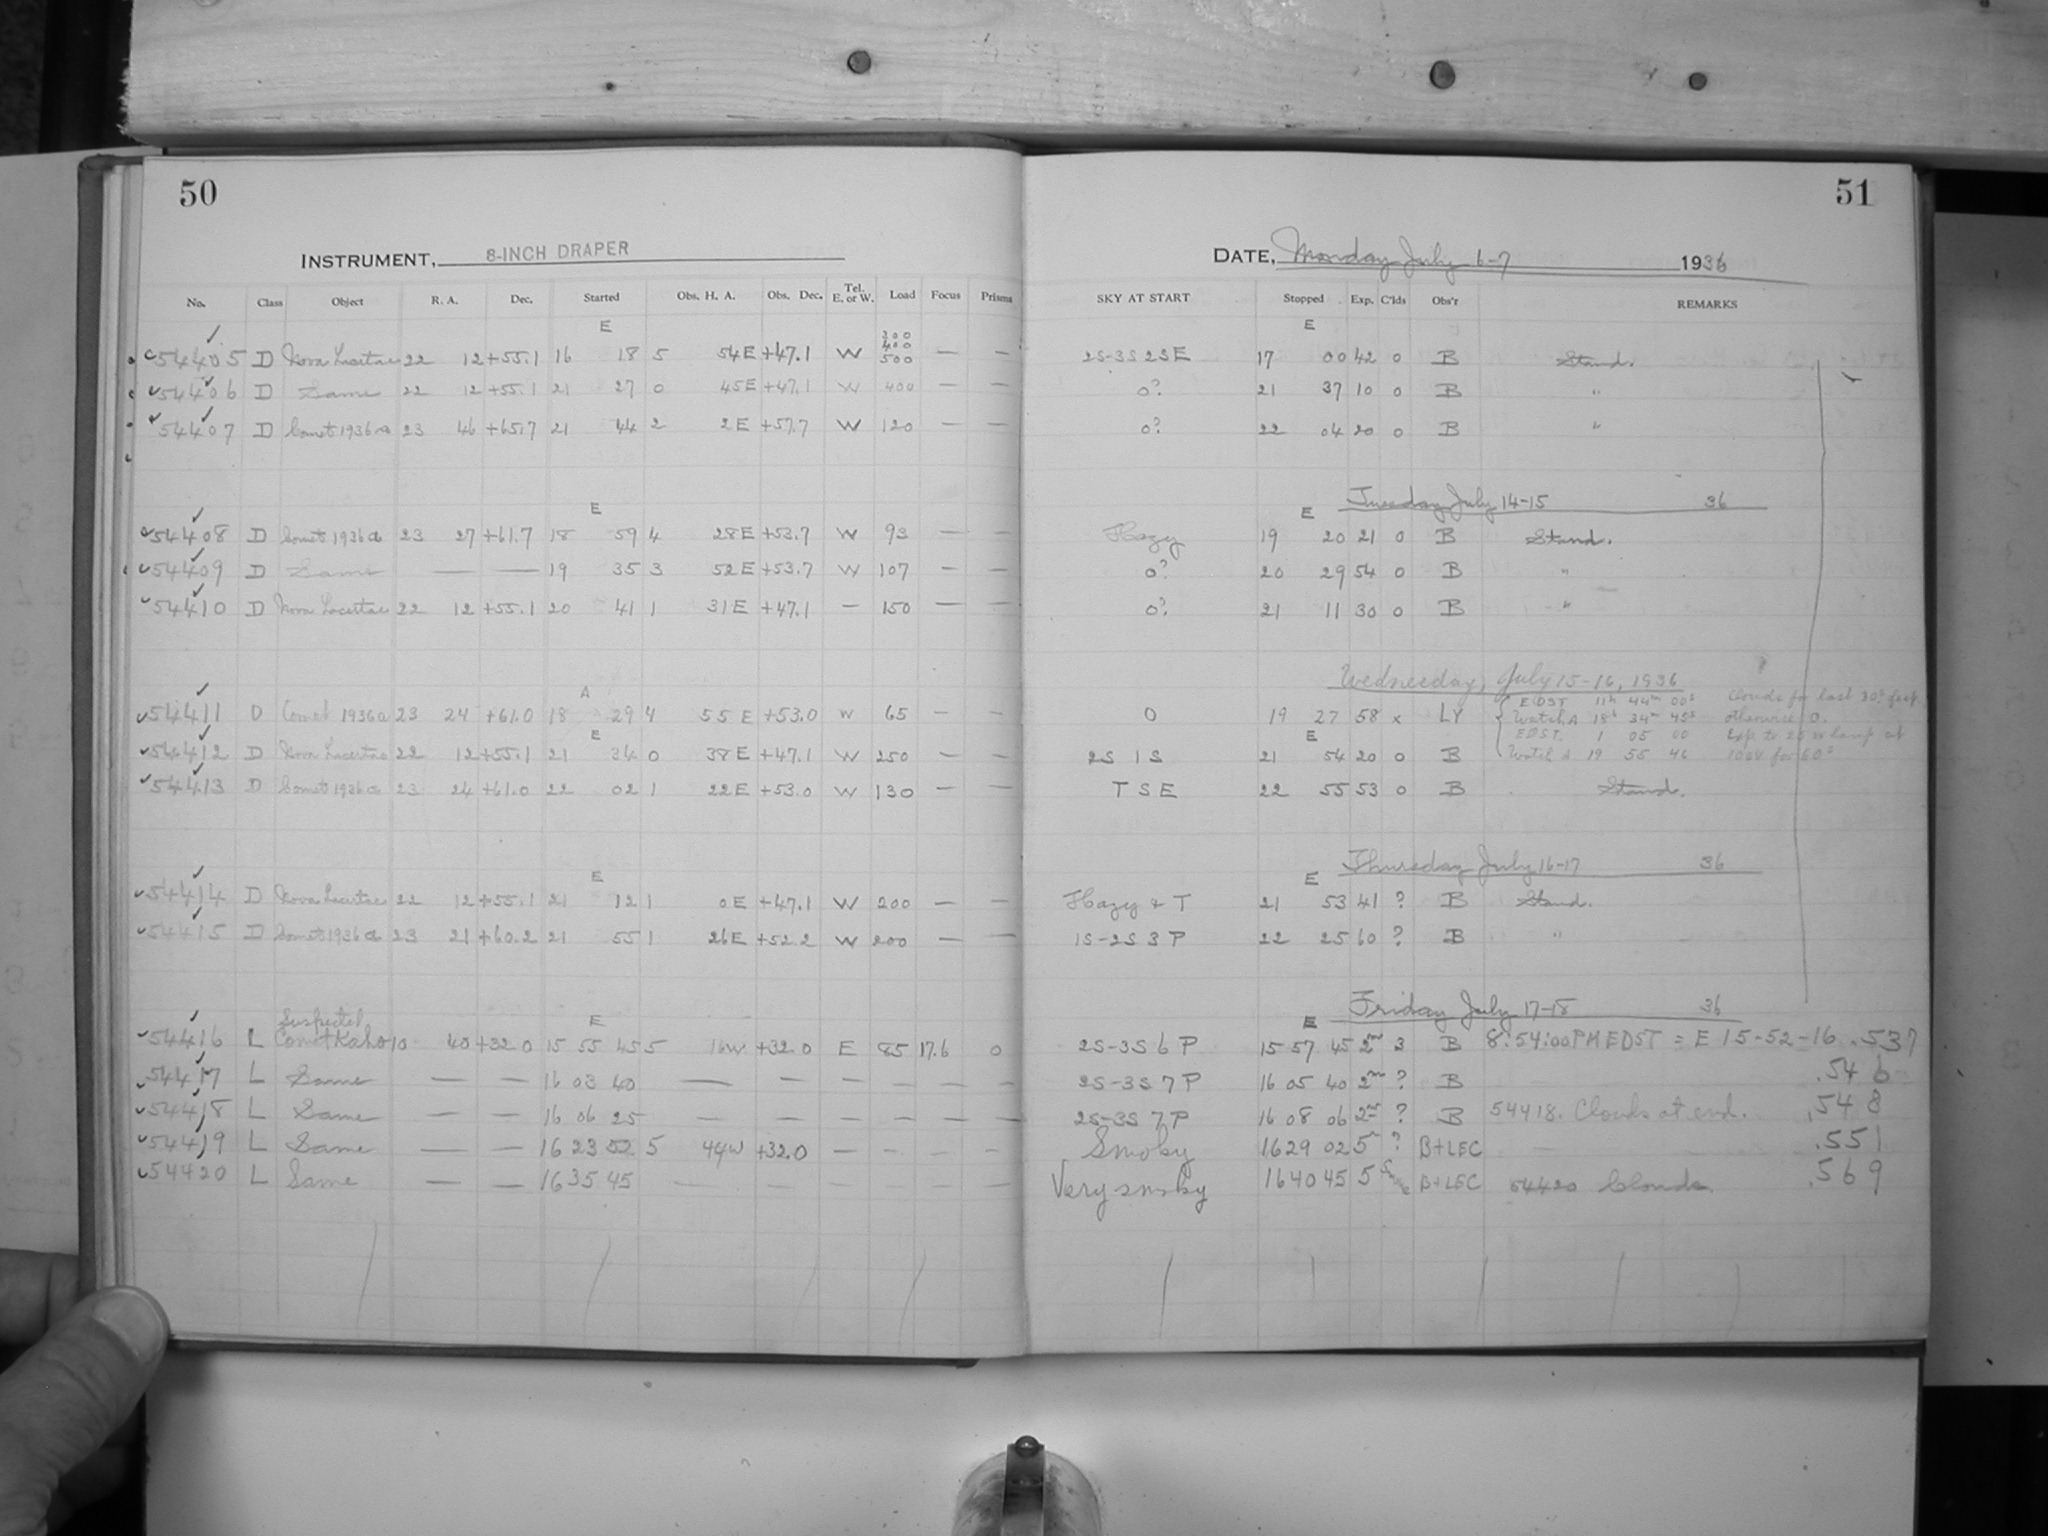 50
INSTRUMENT, 8-INCH DRAPER
No. Class Object R. A. Dec. Started Obs. H. A. Obs. Dec. Tel. E. or W. Load Focus Prisms
E
300
400
54405 D Nova Lacertae 22 12 +55.1 16 18 5 54E +47.1 W 500 — —
54406 D Same 22 12 +55.1 21 27 0 45E +47.1 W 400 — —
54407 D Comet 1936a 23 46 +65.7 21 44 2 2E +57.7 W 120 — —
E
54408 D Comet 1936a 23 27 +61.7 18 59 4 28E +53.7 W 93 — —
54409 D Same — — 19 35 3 52E +53.7 W 107 — —
54410 D Nova Lacertae 22 12 +55.1 20 41 1 31E +47.1 — 150 — —
A
54411 D Comet 1936a 23 24 +61.0 18 29 4 55E +53.0 W 65 — —
E
54412 D Nova Lacertae 22 12 +55.1 21 34 0 38E +47.1 W 250 — —
54413 D Comet 1936a 23 24 +61.0 22 02 1 22E +53.0 W 130 — —
E
54414 D Nova Lacertae 22 12 +55.1 21 12 1 0E +47.1 W 200 — —
54415 D Comet 1936a 23 21 +60.2 21 55 1 26E +52.2 W 200 — —
Suspected E
54416 L Comet Kaho 10 40 +32.0 15 55 45 5 16W +32.0 E 85 17.6 0
54417 L Same — — 16 03 40 — — — — — —
54418 L Same — — 16 06 25 — — — — — —
54419 L Same — — 16 23 52 5 44W +32.0 — — — —
54420 L Same — — 16 35 45 — — — — — —
51
DATE, Monday July 6-7 1936
SKY AT START Stopped Exp. C'lds Obs'r REMARKS
E
2S-3S 2SE 17 00 42 0 B Stand.
0? 21 37 10 0 B "
0? 22 04 20 0 B "
Tuesday July 14-15 36
E
Hazy 19 20 21 0 B Stand.
0? 20 29 54 0 B "
0? 21 11 30 0 B "
Wednesday, July 15-16, 1936
EDST 11h 44m 00s Clouds for last 30s
0 19 27 58 x LY Watch A 18h 34m 45s otherwise 0.
E EDST. 1 05 00 Exp. to 25 w lamp at
2S 1S 21 54 20 0 B Watch A 19 55 46 100V for 60s
T S E 22 55 53 0 B Stand.
Thursday July 16-17 36
E
Hazy & T 21 53 41 ? B Stand.
1S-2S 3P 22 25 60 ? B "
Friday July 17-18 36
E
2S-3S 6P 15 57 45 2m 3 B 8:54:00 PM EDST = E 15-52-16 .537
2S-3S 7P 16 05 40 2m ? B .546
2S-3S 7P 16 08 06 2m ? B 54418. Clouds at end. .548
Smoky 16 29 02 5m ? B+LEC .551
Very smoky 16 40 45 5 Smoke B+LEC 54420 Clouds. .569